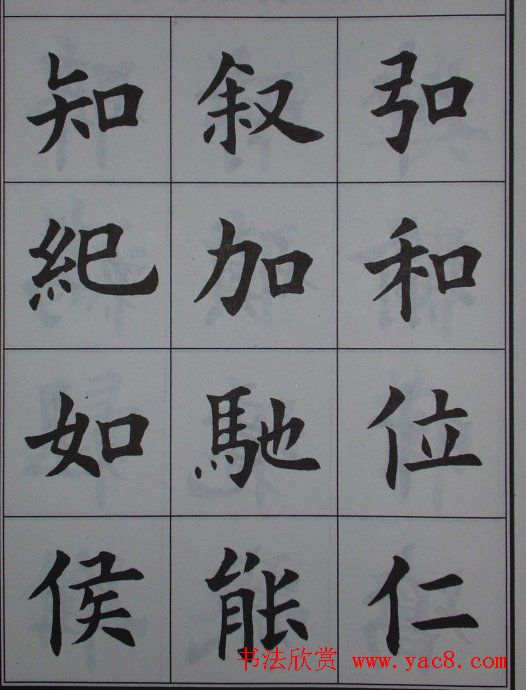 弘和位仁
叙加馳能
知紀如侯
书法欣赏 www.yac8.com